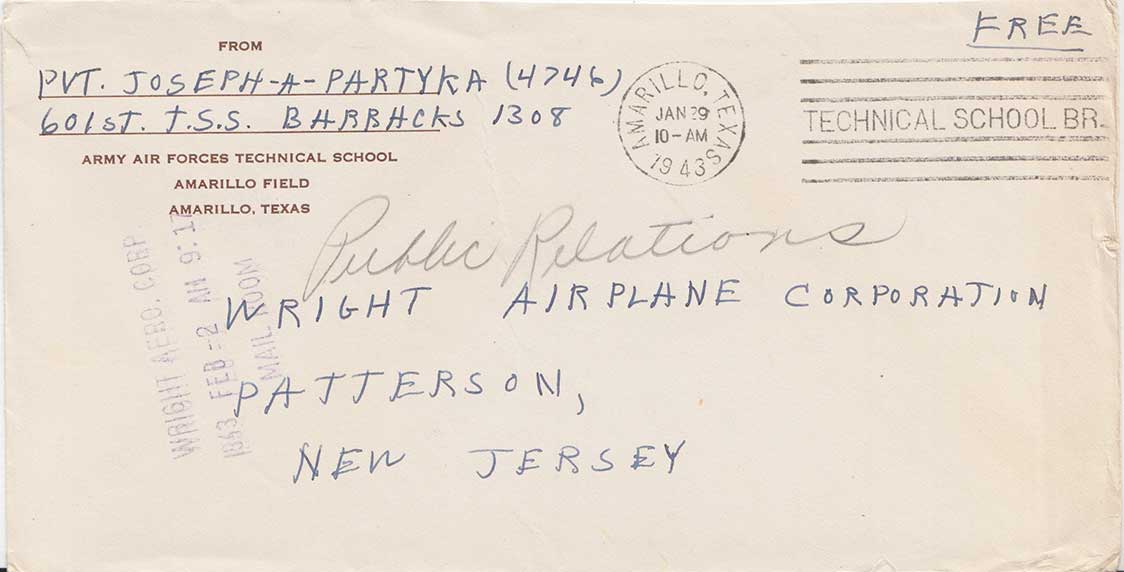 FREE
FROM
PVT. JOSEPH-A-PARTYKA (4746)
601ST. T.S.S. BARRACKS 1308
ARMY AIR FORCES TECHNICAL SCHOOL
AMARILLO FIELD
AMARILLO, TEXAS
AMARILLO, TEXAS
JAN 29
10-AM
1943
TECHNICAL SCHOOL BR.
Public Relations
WRIGHT AIRPLANE CORPORATION
PATTERSON,
NEW JERSEY
WRIGHT AERO. CORP.
FEB -2 AM 9:17
MAIL ROOM